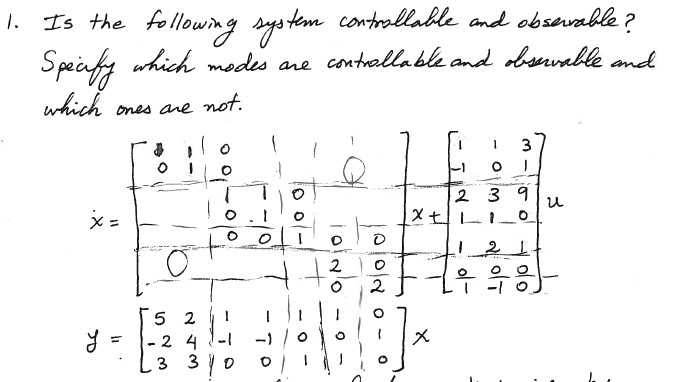 1. Is the following system controllable and observable?
Specify which modes are controllable and observable and
which ones are not.
1 1 0 1 1 3
0 1 0 0 -1 0 1
1 1 0 2 3 9
ẋ = 0 1 0 x + 1 1 0 u
0 0 1 0 0 1 2 1
0 2 0 0 0 0
0 2 1 -1 0
5 2 1 1 1 1 0
y = -2 4 -1 -1 0 0 1 x
3 3 0 0 1 1 0